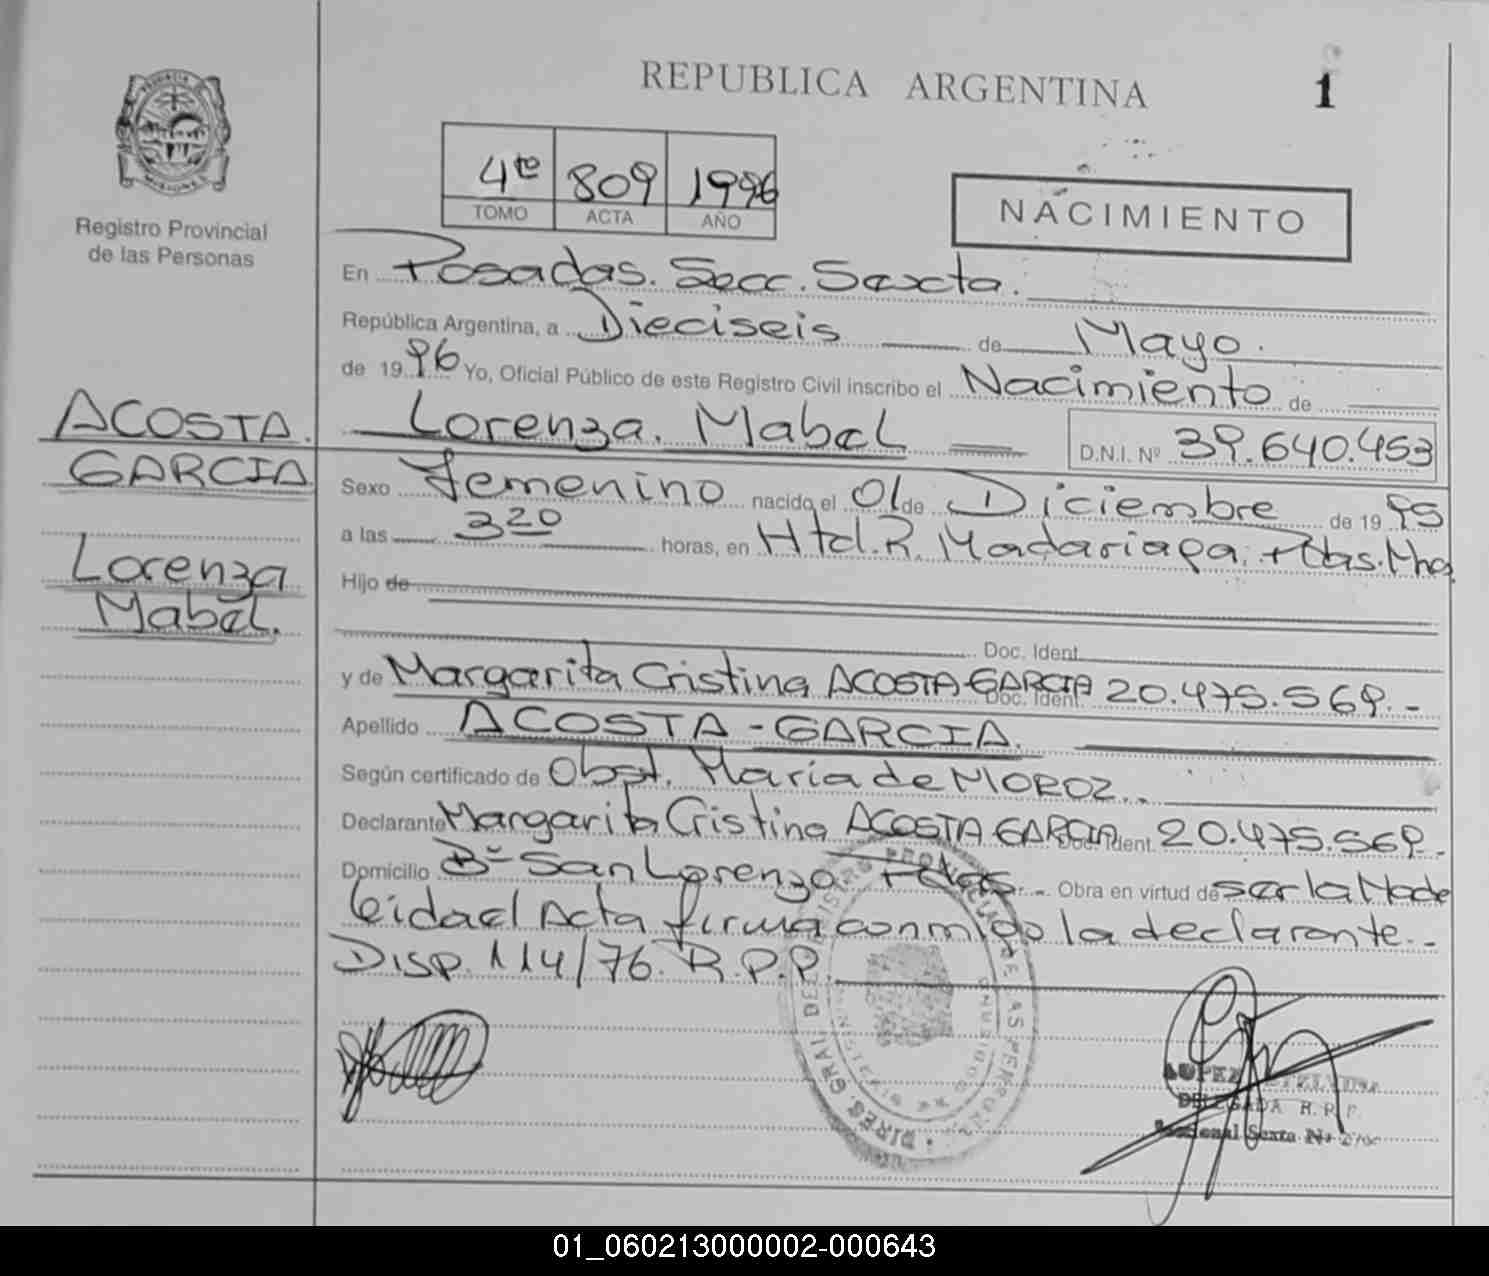 REPUBLICA ARGENTINA
1
Registro Provincial
de las Personas
4to 809 1996
TOMO ACTA AÑO
NACIMIENTO
En Posadas. Secc. Sexta.
República Argentina, a Dieciseis de Mayo.
de 1996 Yo, Oficial Público de este Registro Civil inscribo el Nacimiento de
Lorenza. Mabel D.N.I. Nº 39.640.453
ACOSTA.
GARCIA
Lorenza
Mabel.
Sexo Femenino nacido el 01 de Diciembre de 1995
a las 3 20 horas, en Htal. R. Madariaga. Pdas. Mnes
Hijo de
Doc. Ident.
y de Margarita Cristina ACOSTA GARCIA Doc. Ident. 20.475.569.-
Apellido ACOSTA-GARCIA.
Según certificado de Obst. Maria de MOROZ..
Declarante Margarita Cristina ACOSTA GARCIA Doc. Ident. 20.475.569.-
Domicilio Bº San Lorenzo Pdas.- Obra en virtud de ser la Madre
leida el Acta firma conmigo la declarante..-
Disp. 114/76. R.P.P.
DELEGADA R.P.P.
Seccional Sexta
01_060213000002-000643